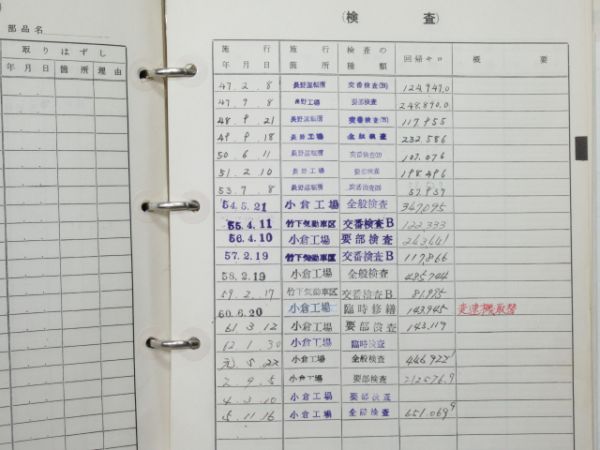 部品名
取りはずし
年月日 箇所 理由
(検 査)
施行年月日 施行箇所 検査の種類 回帰キロ 概要
47. 2. 8 長野運転所 交番検査 124,947.0
47. 9. 8 長野工場 要部検査 248,890.0
48. 9. 21 長野運転所 交番検査 117,955
49. 9. 18 長野工場 全般検査 232,586
50. 6. 11 長野運転所 交番検査 107,076
51. 2. 10 長野工場 要部検査 198,496
53. 7. 8 長野運転所 交番検査 57,957
54. 5. 21 小倉工場 全般検査 367,095
55. 4. 11 竹下気動車区 交番検査B 122,333
56. 4. 10 小倉工場 要部検査 243,641
57. 2. 19 竹下気動車区 交番検査B 117,866
58. 2. 19 小倉工場 全般検査 485,744
59. 2. 17 竹下気動車区 交番検査B 81,975
60. 6. 20 小倉工場 臨時修繕 143,945 変速機取替
61. 3. 12 小倉工場 要部検査 143,119
62. 1. 30 小倉工場 臨時検査
元. 5. 22 小倉工場 全般検査 446,922
2. 9. 5 小倉工場 要部検査 212,576.9
4. 3. 10 小倉工場 要部検査
5. 11. 16 小倉工場 全般検査 651,069.9